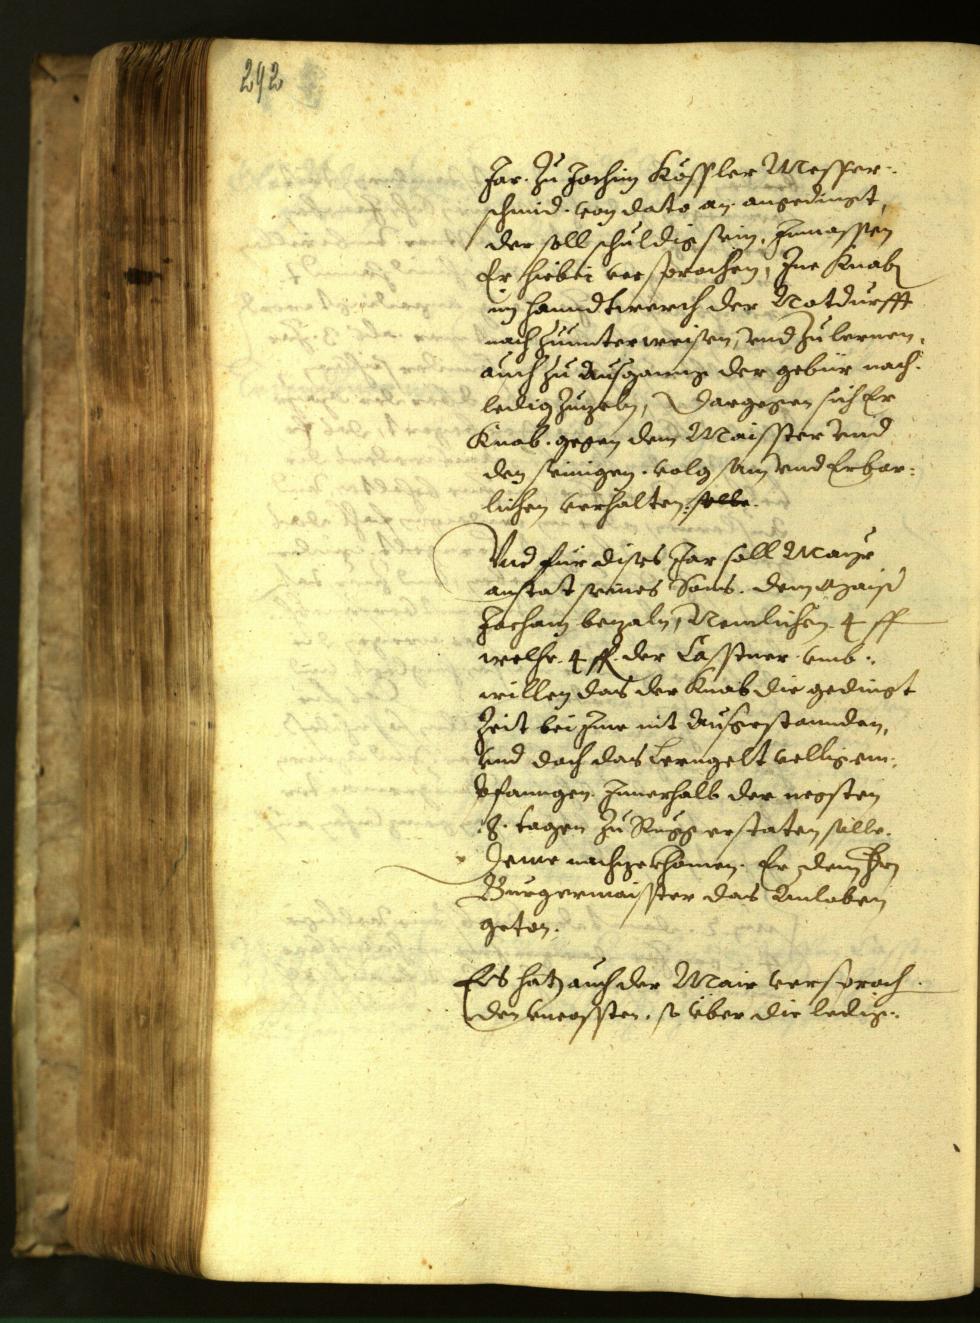 292
Jar. zu Jochim Kössler Messer-
schmid. von dato an. angedingt,
der soll schuldig sein, Inmassen
Er hiebei versprochen, Ine Knab
im Hanndtwerch der Notdurfft
nach zuunterweisen, vnd zulernen,
auch zu Außganng der gebür nach.
ledig zuzeln, Dargegen sich Er
Knab. gegen dem Maisster vnd
den seinigen. volgsam vnd Erbar-
lichen verhalten. solle.
Vnd für dises Jar soll Mayr
anstat seines Sons. dem Maister
Jochaim bezaln, Nemlichen 4 ff
welche. 4 ff. der Casstner vmb-
willen das der Knab die gedingt
Zeit bei Ime nit ausgestannden,
vnd doch das Lerngelt vellig em-
pfanngen. Innerhalb der negsten
.8. tagen zu Rugg erstaten solle.
Deme nachzekhomen. Er dem Hrn
Burgermaisster das Anloben
geton.
Es hat auch der Mair versproch
den vncossten. so über die ledig-